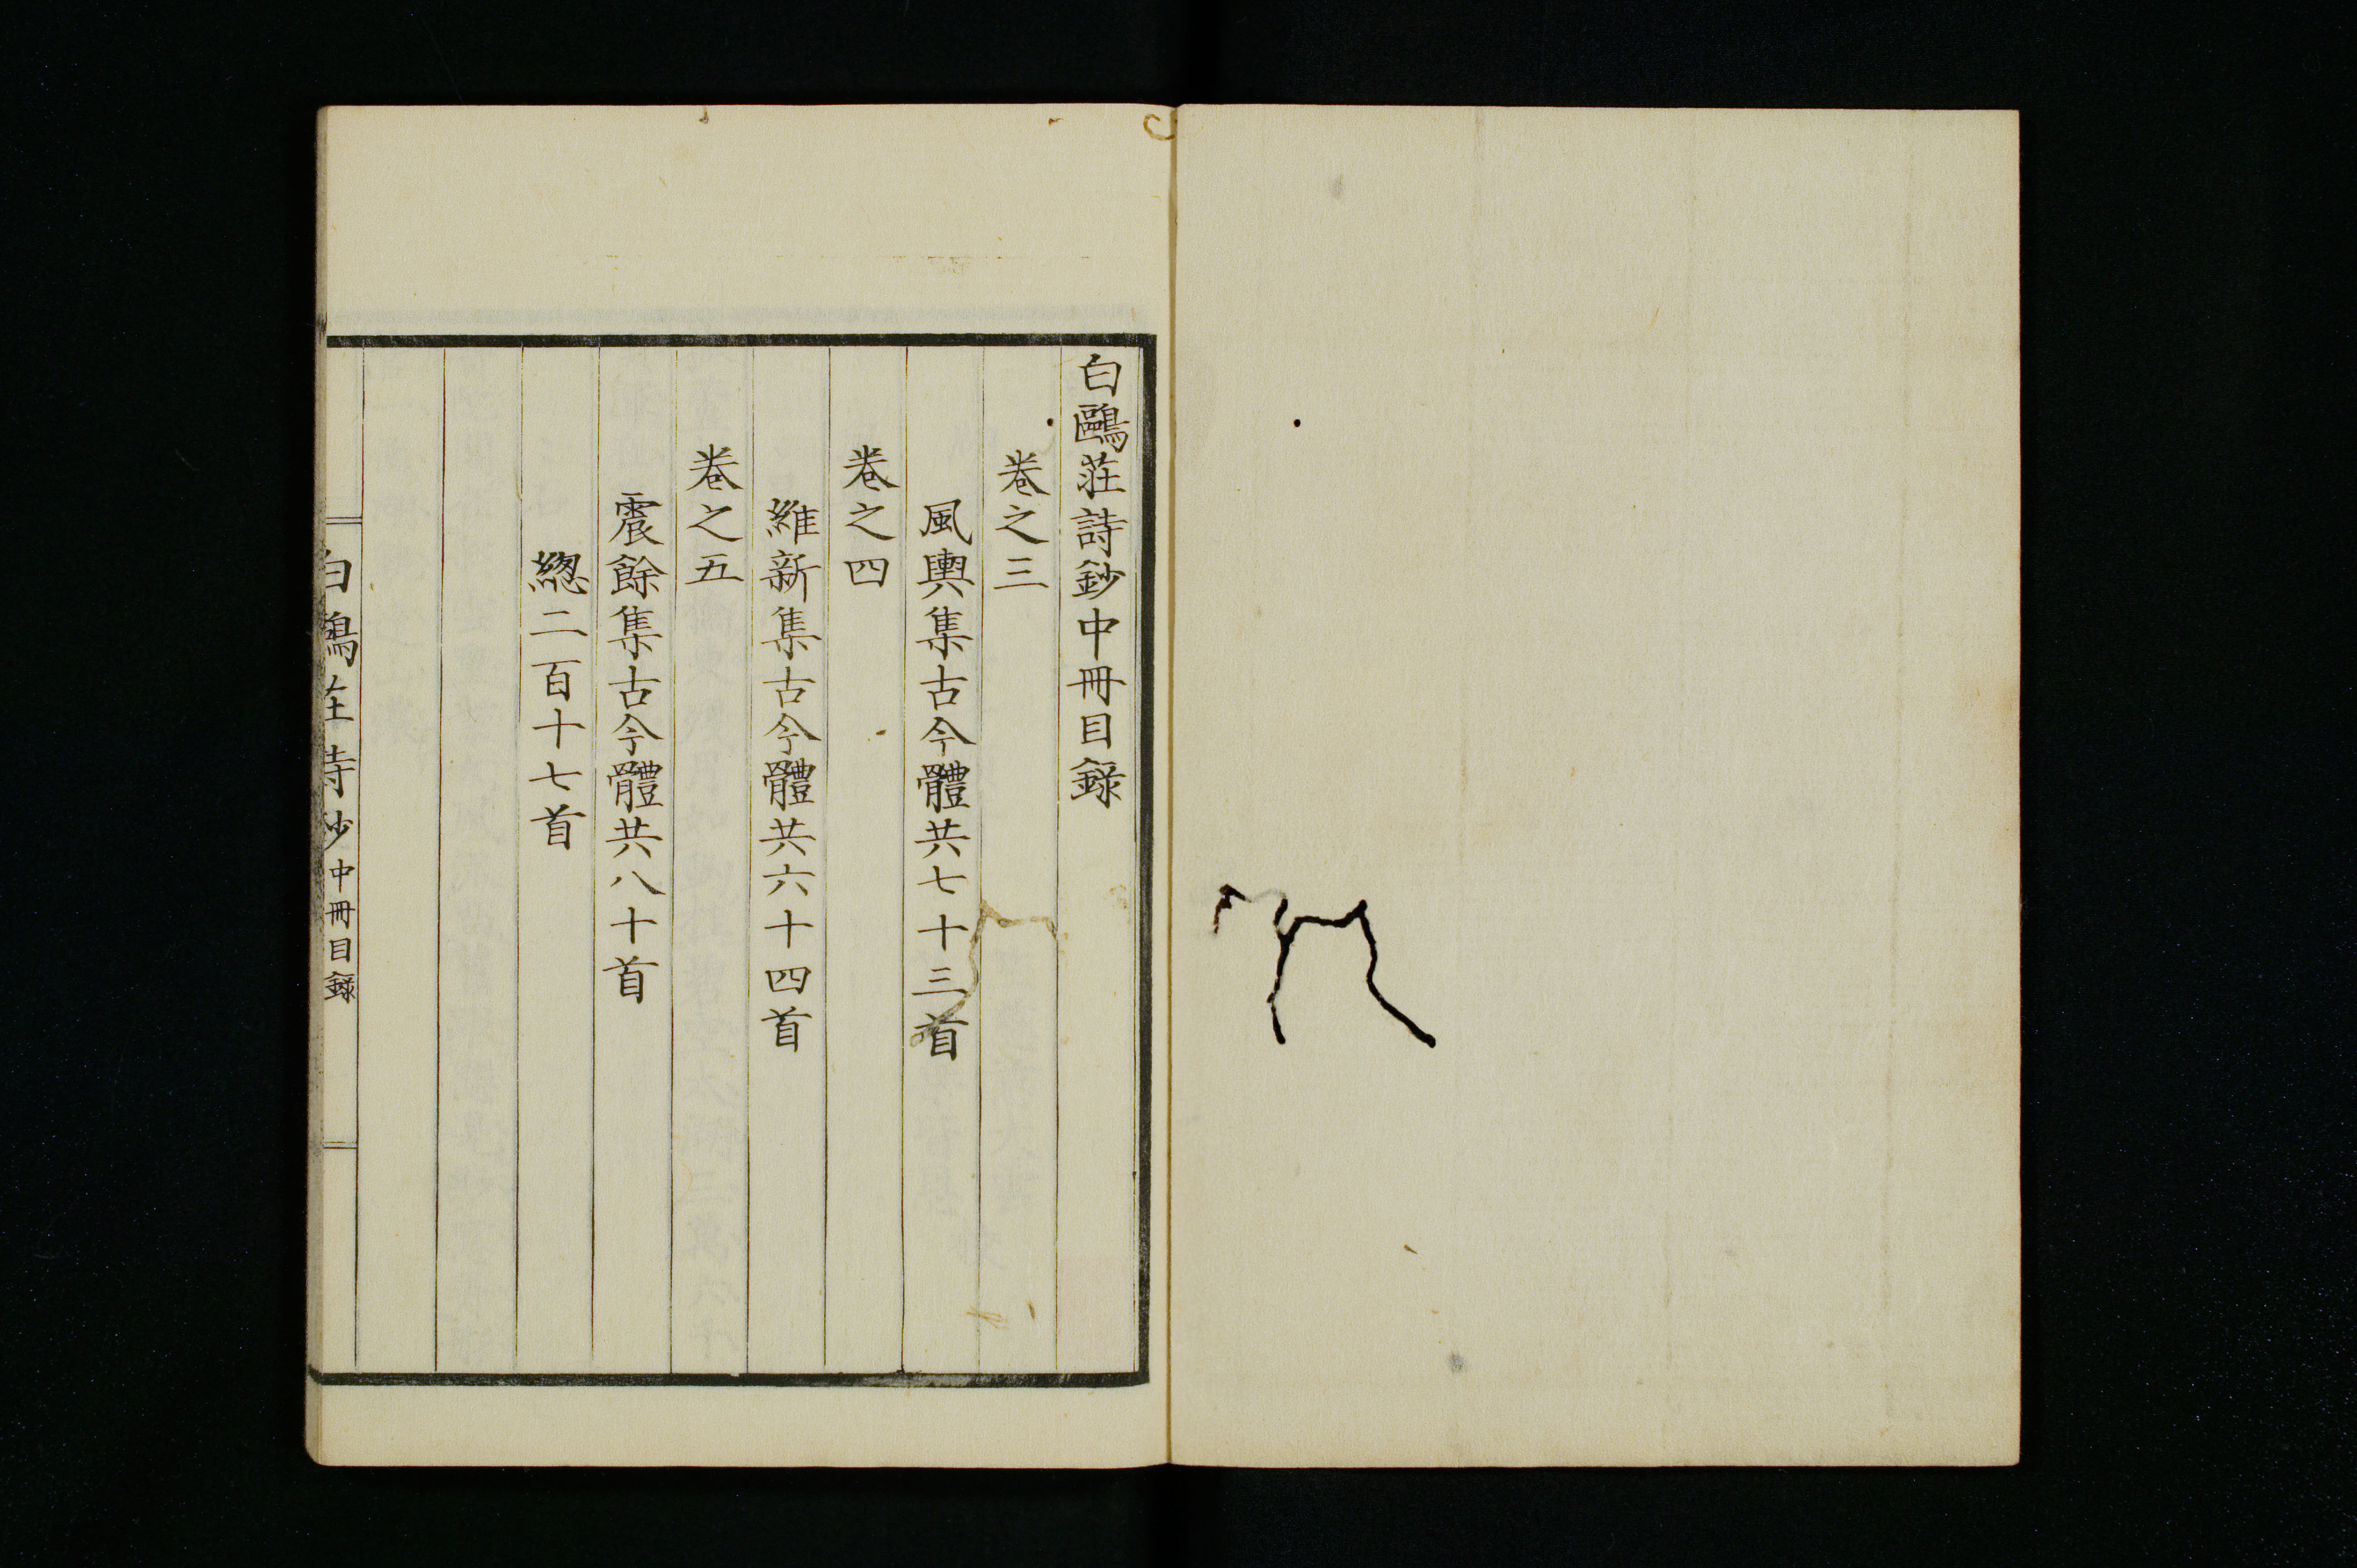 白鷗莊詩鈔中冊目錄
卷之三
風輿集古今體共七十三首
卷之四
維新集古今體共六十四首
卷之五
震餘集古今體共八十首
總二百十七首
白鷗莊詩鈔中冊目錄